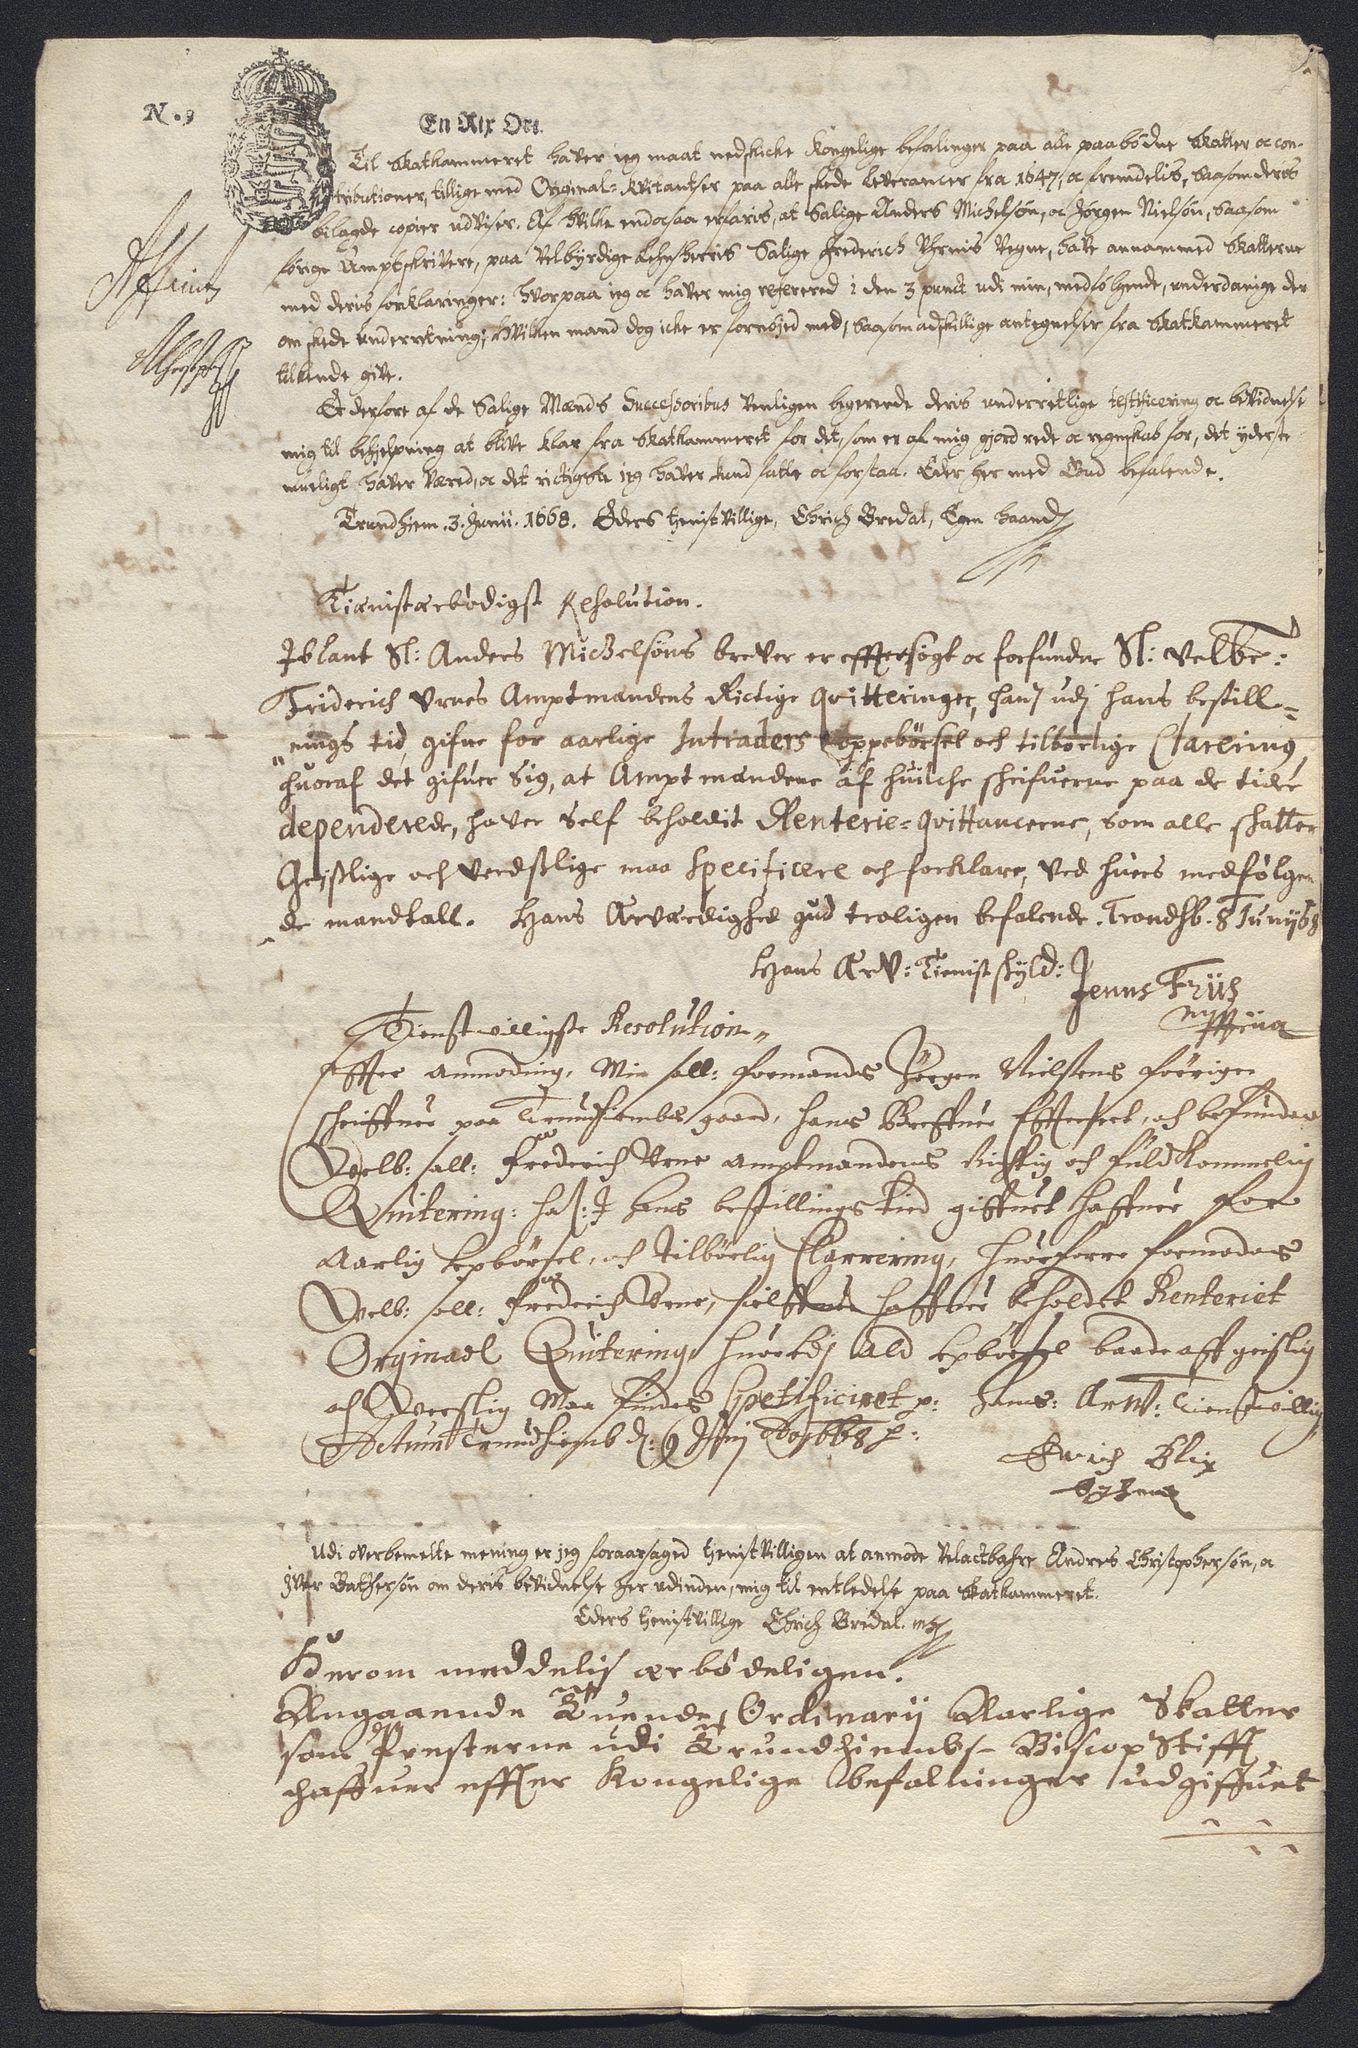 N. 9
En Rix Ort.
Til Skatkammeret haver jeg maat nedskicke Kongelige befalinger paa alle paabödne Skatter oc con-
tributioner, tillige med Original-Kvitantser paa alle skede Leverancer fra 1647, oc fremdelis, saasom deris
bilagde copier udviser. Af hvilke endocsaa erfaris, at Salige Anders Michelsön, oc Jörgen Nielsön, saasom
forige Amptskrivere, paa Velbyrdige Lehnsherris Salige Frederich Uhrnis Vegne, have annammed Skatterne
med deris forklaringer: hvorpaa jeg oc haver mig refererед i den 3 punct udi min, medfölgende, underdanige der
om skede underretning; hvilken mand dog icke er fornöjed med, saasom adskillige antegnelser fra Skatkammeret
tilkende give.
Er derfore af de Salige Mænds Successoribus venligen begerende deris underretlige testificering oc beviidnelse
mig til behjelpning at blive klar fra Skatkammeret for det, som er af mig gjord rede oc regenskab for, det yderste
mueligt haver væred, oc det rictigste jeg haver kund fatte oc forstaa. Eder her med Gud befalende.
Trundhiem. 3. Junii. 1668. Eders tjenistvillige, Ehrich Bredal, Egen haand
Tienistærbödigst Resolution.
Iblant Sl: Anders Michelsöns brever er effttersögt oc forfunden Sl: velbr:
Friderich Urnes Amptmandens Rictige Qvitteringer, hans udj hans bestill-
nings tid, gifne for aarlige Intraders oppebörsel och tilbörlige Clarering,
huoraf det gifuer sig, at Amptmandene af huilche schrifuerne paa de tider
dependerede, haver self beholdit Renterie-qvittancerne, som alle skatter
Geistlige och verdslige maa specificere och forklare, ved huers medfölgen
de mandtall. Hans Ærværdighed gud troligen befalende. Trondhb. 8 Junij 68
Hans ÆrV: Tienistskyld:
Jenns Friis
mppria
Tienstwilligste Resolution
Effter anmoding, Min sall: formands Jörgen Nielsens förrige
schriffuer paa Trundhiembs gaard, hans Breffue Effterseet, och befunden
Welb: sall: Frederich Urne amptmandens Richtig och fuldkommelig
Quitering: has: I hans bestillings tied giffuet haffuer for
Aarlig opbörsel, och tilbörlig Clarrering, huorforre formodes
Welb: sall: Frederich Urne, sielff haffuer beholdet Renteriet
Orginael Quitering, huor udj ald opbörsel baade aff geislig
och Verslig Maa findes Spetificiret p: Hans: ArW: Tienstvillig
Actum Trundhiemb d: 9 Junij Ao 1668 p:
Erich Blix
Udi overbemelte mening er jeg foraarsaged tjenistvilligen at anmode Velactbahre Andres Christophersön, oc
Iver Bathersön om deris bevidnelse her udinden, mig til entledelse paa Skatkammeret.
Eders tjenistvillige Ehrich Bredal. mp
Herom meddelis ærbödeligen.
Angaaende Tuende Ordinarij Aarlige Skatter
som Presterne udi Trundhiembs Biscop Stifft
haffuer effter Kongelige befalninger udgiffuet